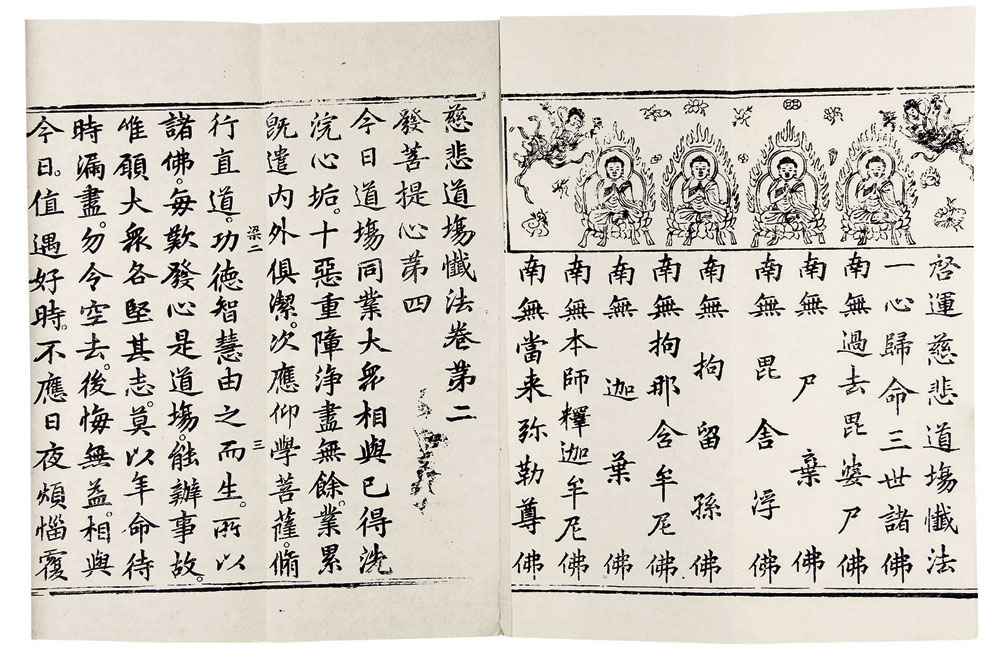 啓運慈悲道塲懺法
一心歸命三世諸佛
南無過去毘婆尸佛
南無尸棄佛
南無毘舍浮佛
南無拘留孫佛
南無拘那含牟尼佛
南無迦葉佛
南無本師釋迦牟尼佛
南無當来弥勒尊佛
慈悲道塲懺法卷第二
發菩提心第四
今日道塲同業大衆相與已得洗
浣心垢。十惡重障浄盡無餘。業累
旣遣内外俱潔。次應仰學菩薩。脩
梁二
三
行直道。功德智慧由之而生。所以
諸佛。每歎發心是道塲。能辦事故。
唯願大衆各堅其志。莫以年命待
時漏盡。勿令空去。後悔無益。相與
今日。值遇好時。不應日夜煩惱覆